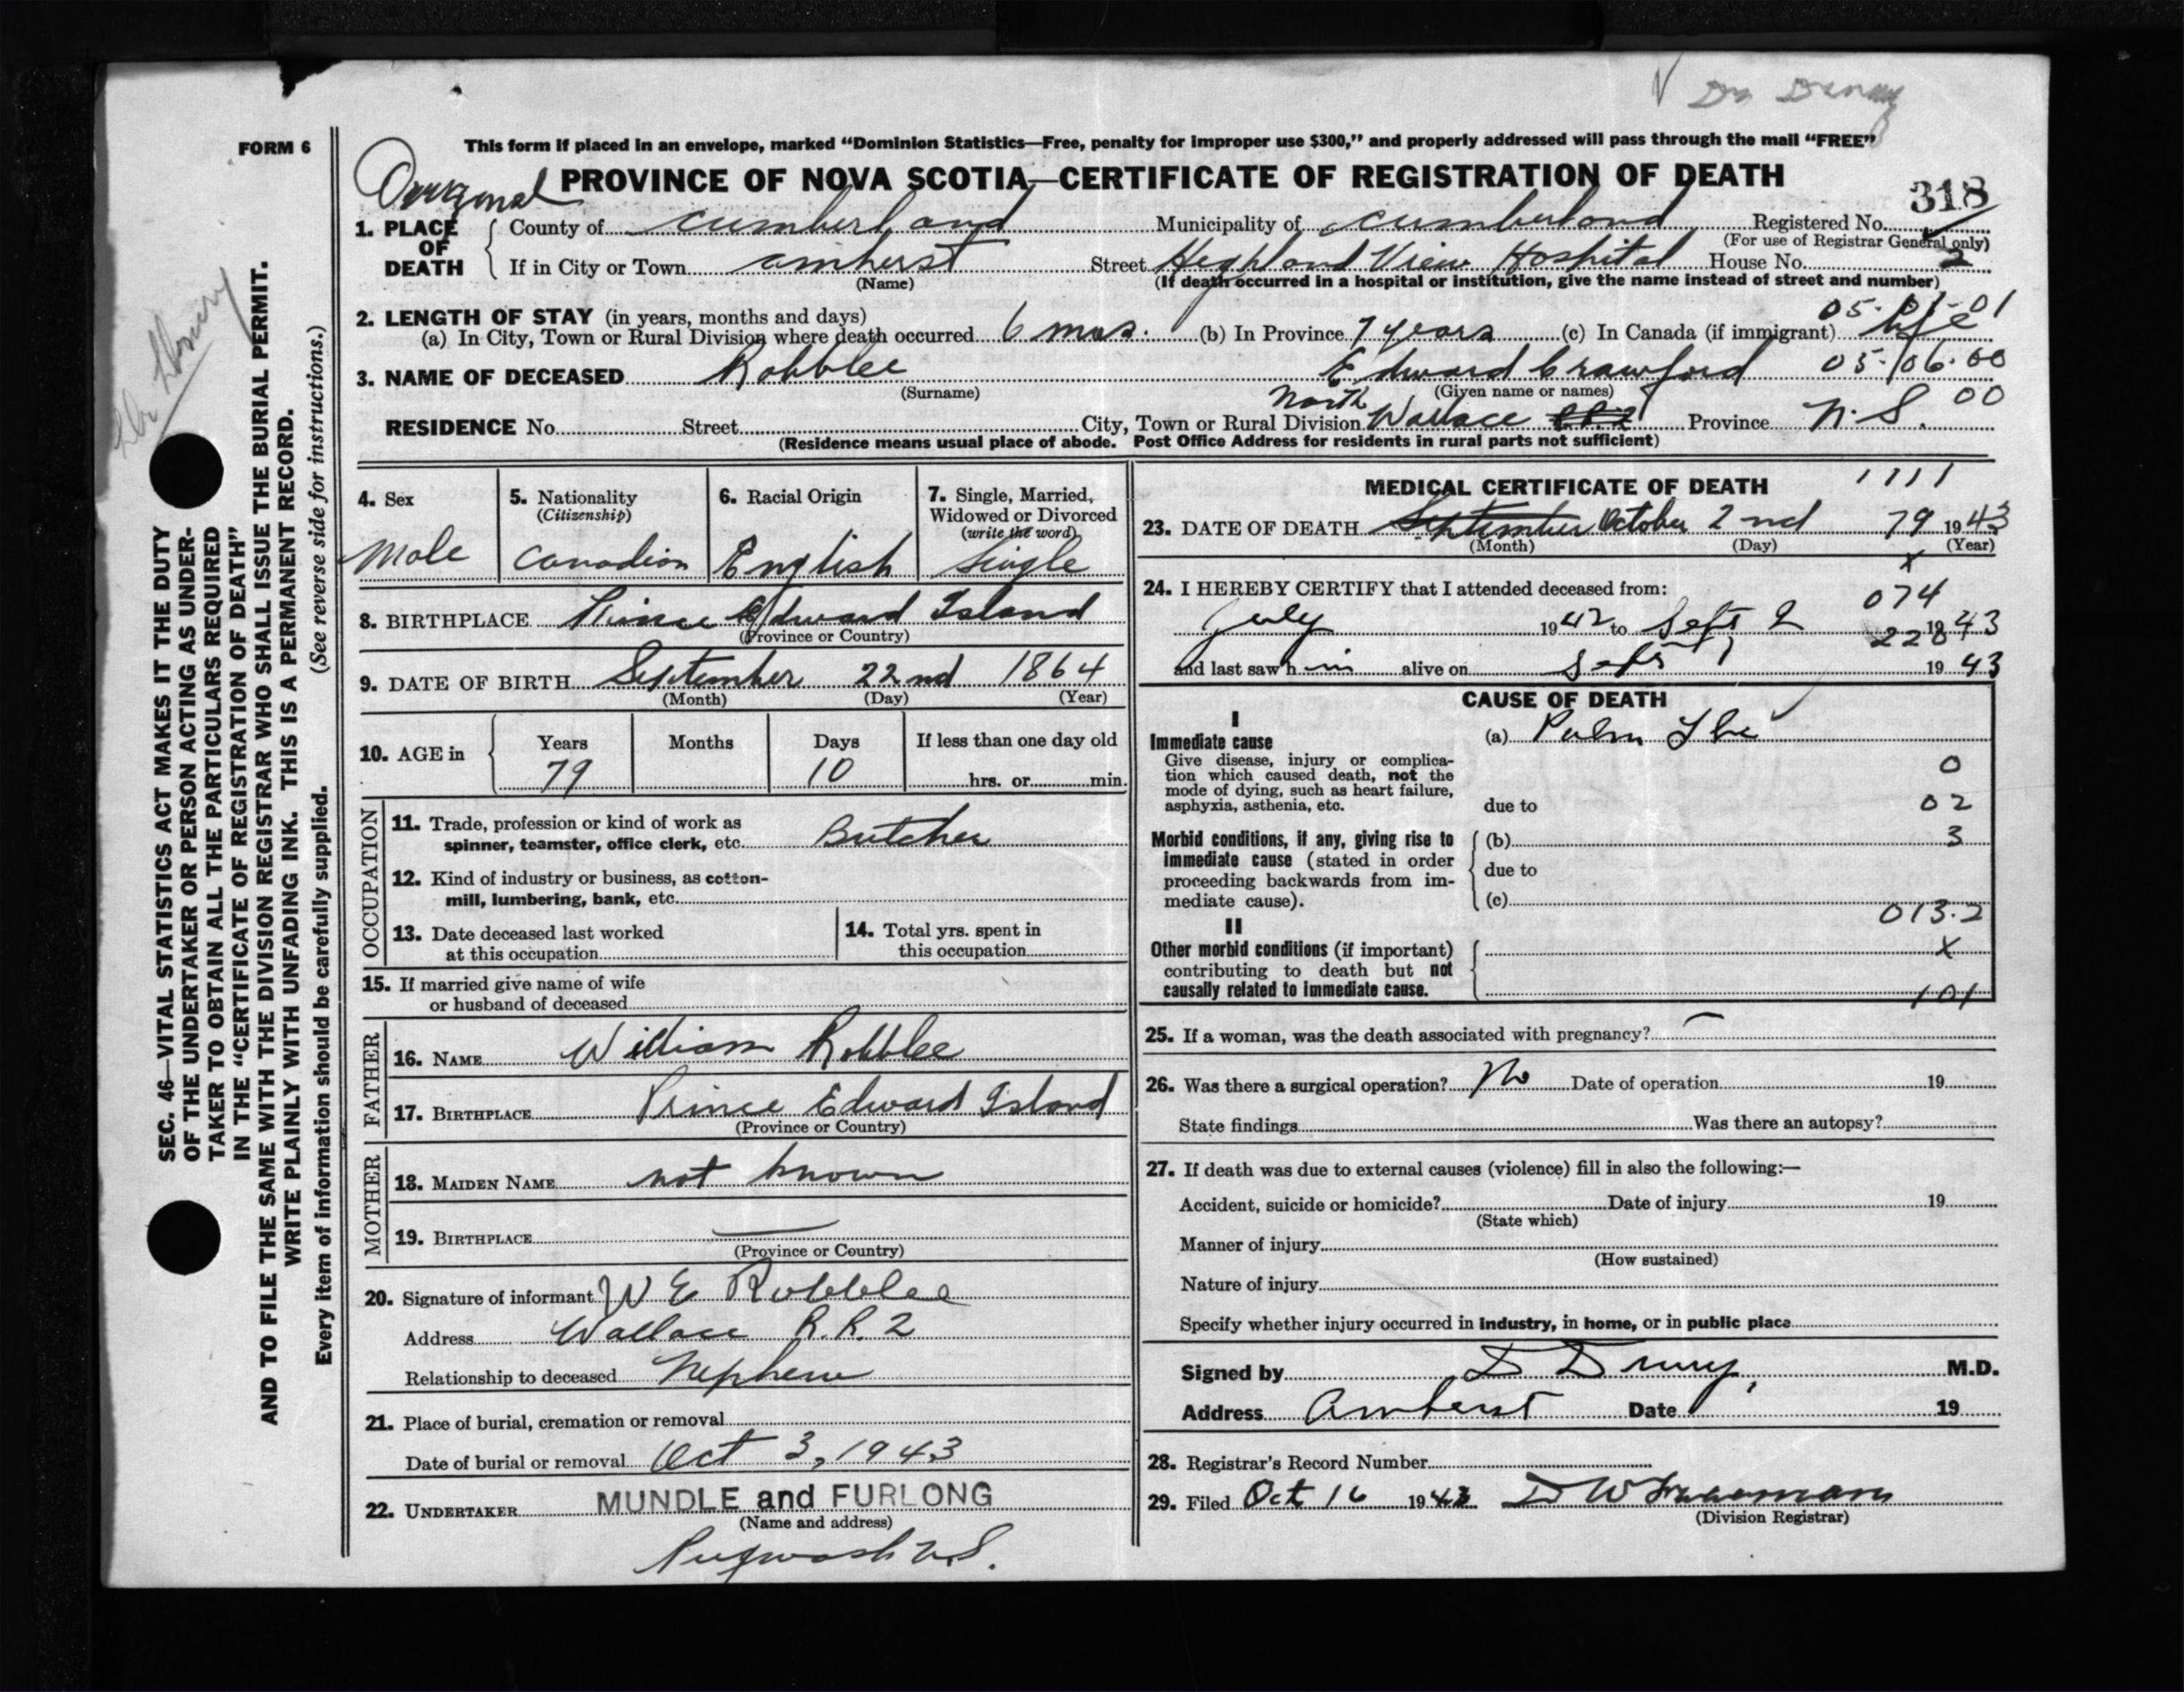 Dr Drury
FORM 6
This form if placed in an envelope, marked “Dominion Statistics—Free, penalty for improper use $300,” and properly addressed will pass through the mail “FREE”
Original
PROVINCE OF NOVA SCOTIA—CERTIFICATE OF REGISTRATION OF DEATH
318
1. PLACE OF DEATH
County of Cumberland Municipality of Cumberland Registered No.
(For use of Registrar General only)
If in City or Town Amherst Street Highland View Hospital House No. 2
(Name) (If death occurred in a hospital or institution, give the name instead of street and number)
05-01-01
2. LENGTH OF STAY (in years, months and days)
(a) In City, Town or Rural Division where death occurred 6 mos. (b) In Province 7 years (c) In Canada (if immigrant) life
3. NAME OF DECEASED Robblee Edward Crawford 05-06-00
(Surname) (Given name or names)
00
RESIDENCE No. Street City, Town or Rural Division North Wallace Province N.S.
(Residence means usual place of abode. Post Office Address for residents in rural parts not sufficient)
4. Sex
Male
5. Nationality
(Citizenship)
Canadian
6. Racial Origin
English
7. Single, Married,
Widowed or Divorced
(write the word)
Single
8. BIRTHPLACE Prince Edward Island
(Province or Country)
9. DATE OF BIRTH September 22nd 1864
(Month) (Day) (Year)
10. AGE in
Years Months Days If less than one day old
79 10 hrs. or min.
OCCUPATION
11. Trade, profession or kind of work as
spinner, teamster, office clerk, etc. Butcher
12. Kind of industry or business, as cotton-
mill, lumbering, bank, etc.
13. Date deceased last worked
at this occupation
14. Total yrs. spent in
this occupation
15. If married give name of wife
or husband of deceased
FATHER
16. NAME William Robblee
17. BIRTHPLACE Prince Edward Island
(Province or Country)
MOTHER
18. MAIDEN NAME not known
19. BIRTHPLACE —
(Province or Country)
20. Signature of informant W E Robblee
Address Wallace R.R. 2
Relationship to deceased Nephew
21. Place of burial, cremation or removal
Date of burial or removal Oct 3, 1943
22. UNDERTAKER MUNDLE and FURLONG
(Name and address)
Pugwash N.S.
1111
MEDICAL CERTIFICATE OF DEATH
23. DATE OF DEATH September October 2nd 79 1943
(Month) (Day) (Year)
x
24. I HEREBY CERTIFY that I attended deceased from:
074
July 1942 to Sept 2 1943
228
and last saw him alive on Sept 1 1943
CAUSE OF DEATH
I
Immediate cause
Give disease, injury or complica-
tion which caused death, not the
mode of dying, such as heart failure,
asphyxia, asthenia, etc.
(a) Pulm Tbc
0
due to 02
Morbid conditions, if any, giving rise to
immediate cause (stated in order
proceeding backwards from im-
mediate cause).
(b) 3
due to
(c)
013.2
II
Other morbid conditions (if important)
contributing to death but not
causally related to immediate cause.
x
101
25. If a woman, was the death associated with pregnancy? —
26. Was there a surgical operation? No Date of operation 19
State findings Was there an autopsy?
27. If death was due to external causes (violence) fill in also the following:—
Accident, suicide or homicide? Date of injury 19
(State which)
Manner of injury
(How sustained)
Nature of injury
Specify whether injury occurred in industry, in home, or in public place
Signed by D Drury, M.D.
Address Amherst Date 19
28. Registrar's Record Number
29. Filed Oct 16 1943
(Division Registrar)
SEC. 46—VITAL STATISTICS ACT MAKES IT THE DUTY
OF THE UNDERTAKER OR PERSON ACTING AS UNDER-
TAKER TO OBTAIN ALL THE PARTICULARS REQUIRED
IN THE “CERTIFICATE OF REGISTRATION OF DEATH”
AND TO FILE THE SAME WITH THE DIVISION REGISTRAR WHO SHALL ISSUE THE BURIAL PERMIT.
WRITE PLAINLY WITH UNFADING INK. THIS IS A PERMANENT RECORD.
Every item of information should be carefully supplied. (See reverse side for instructions.)